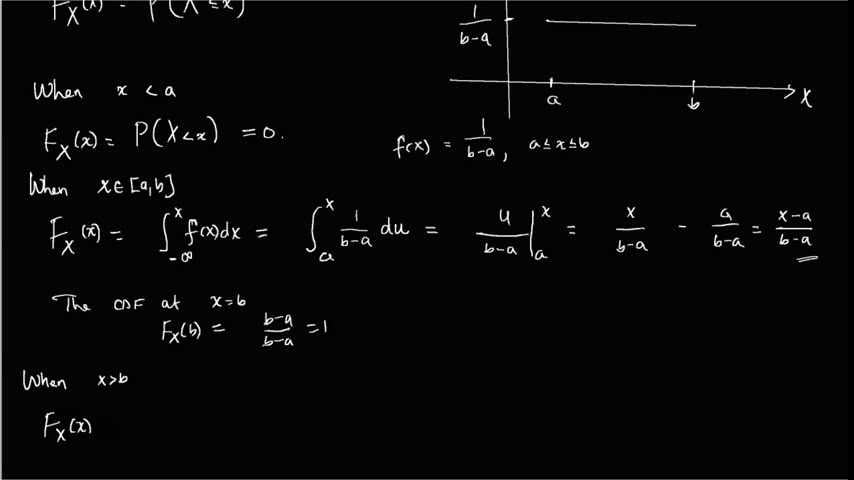 F_X(x) = P(X ≤ x)
1/(b-a)
a b X
When x < a
F_X(x) = P(X < x) = 0.
f(x) = 1/(b-a), a ≤ x ≤ b
When x ∈ [a,b]
F_X(x) = ∫_{-∞}^{x} f(x)dx = ∫_a^x 1/(b-a) du = u/(b-a) |_a^x = x/(b-a) - a/(b-a) = (x-a)/(b-a)
The CDF at x=b
F_X(b) = (b-a)/(b-a) = 1
When x>b
F_X(x)